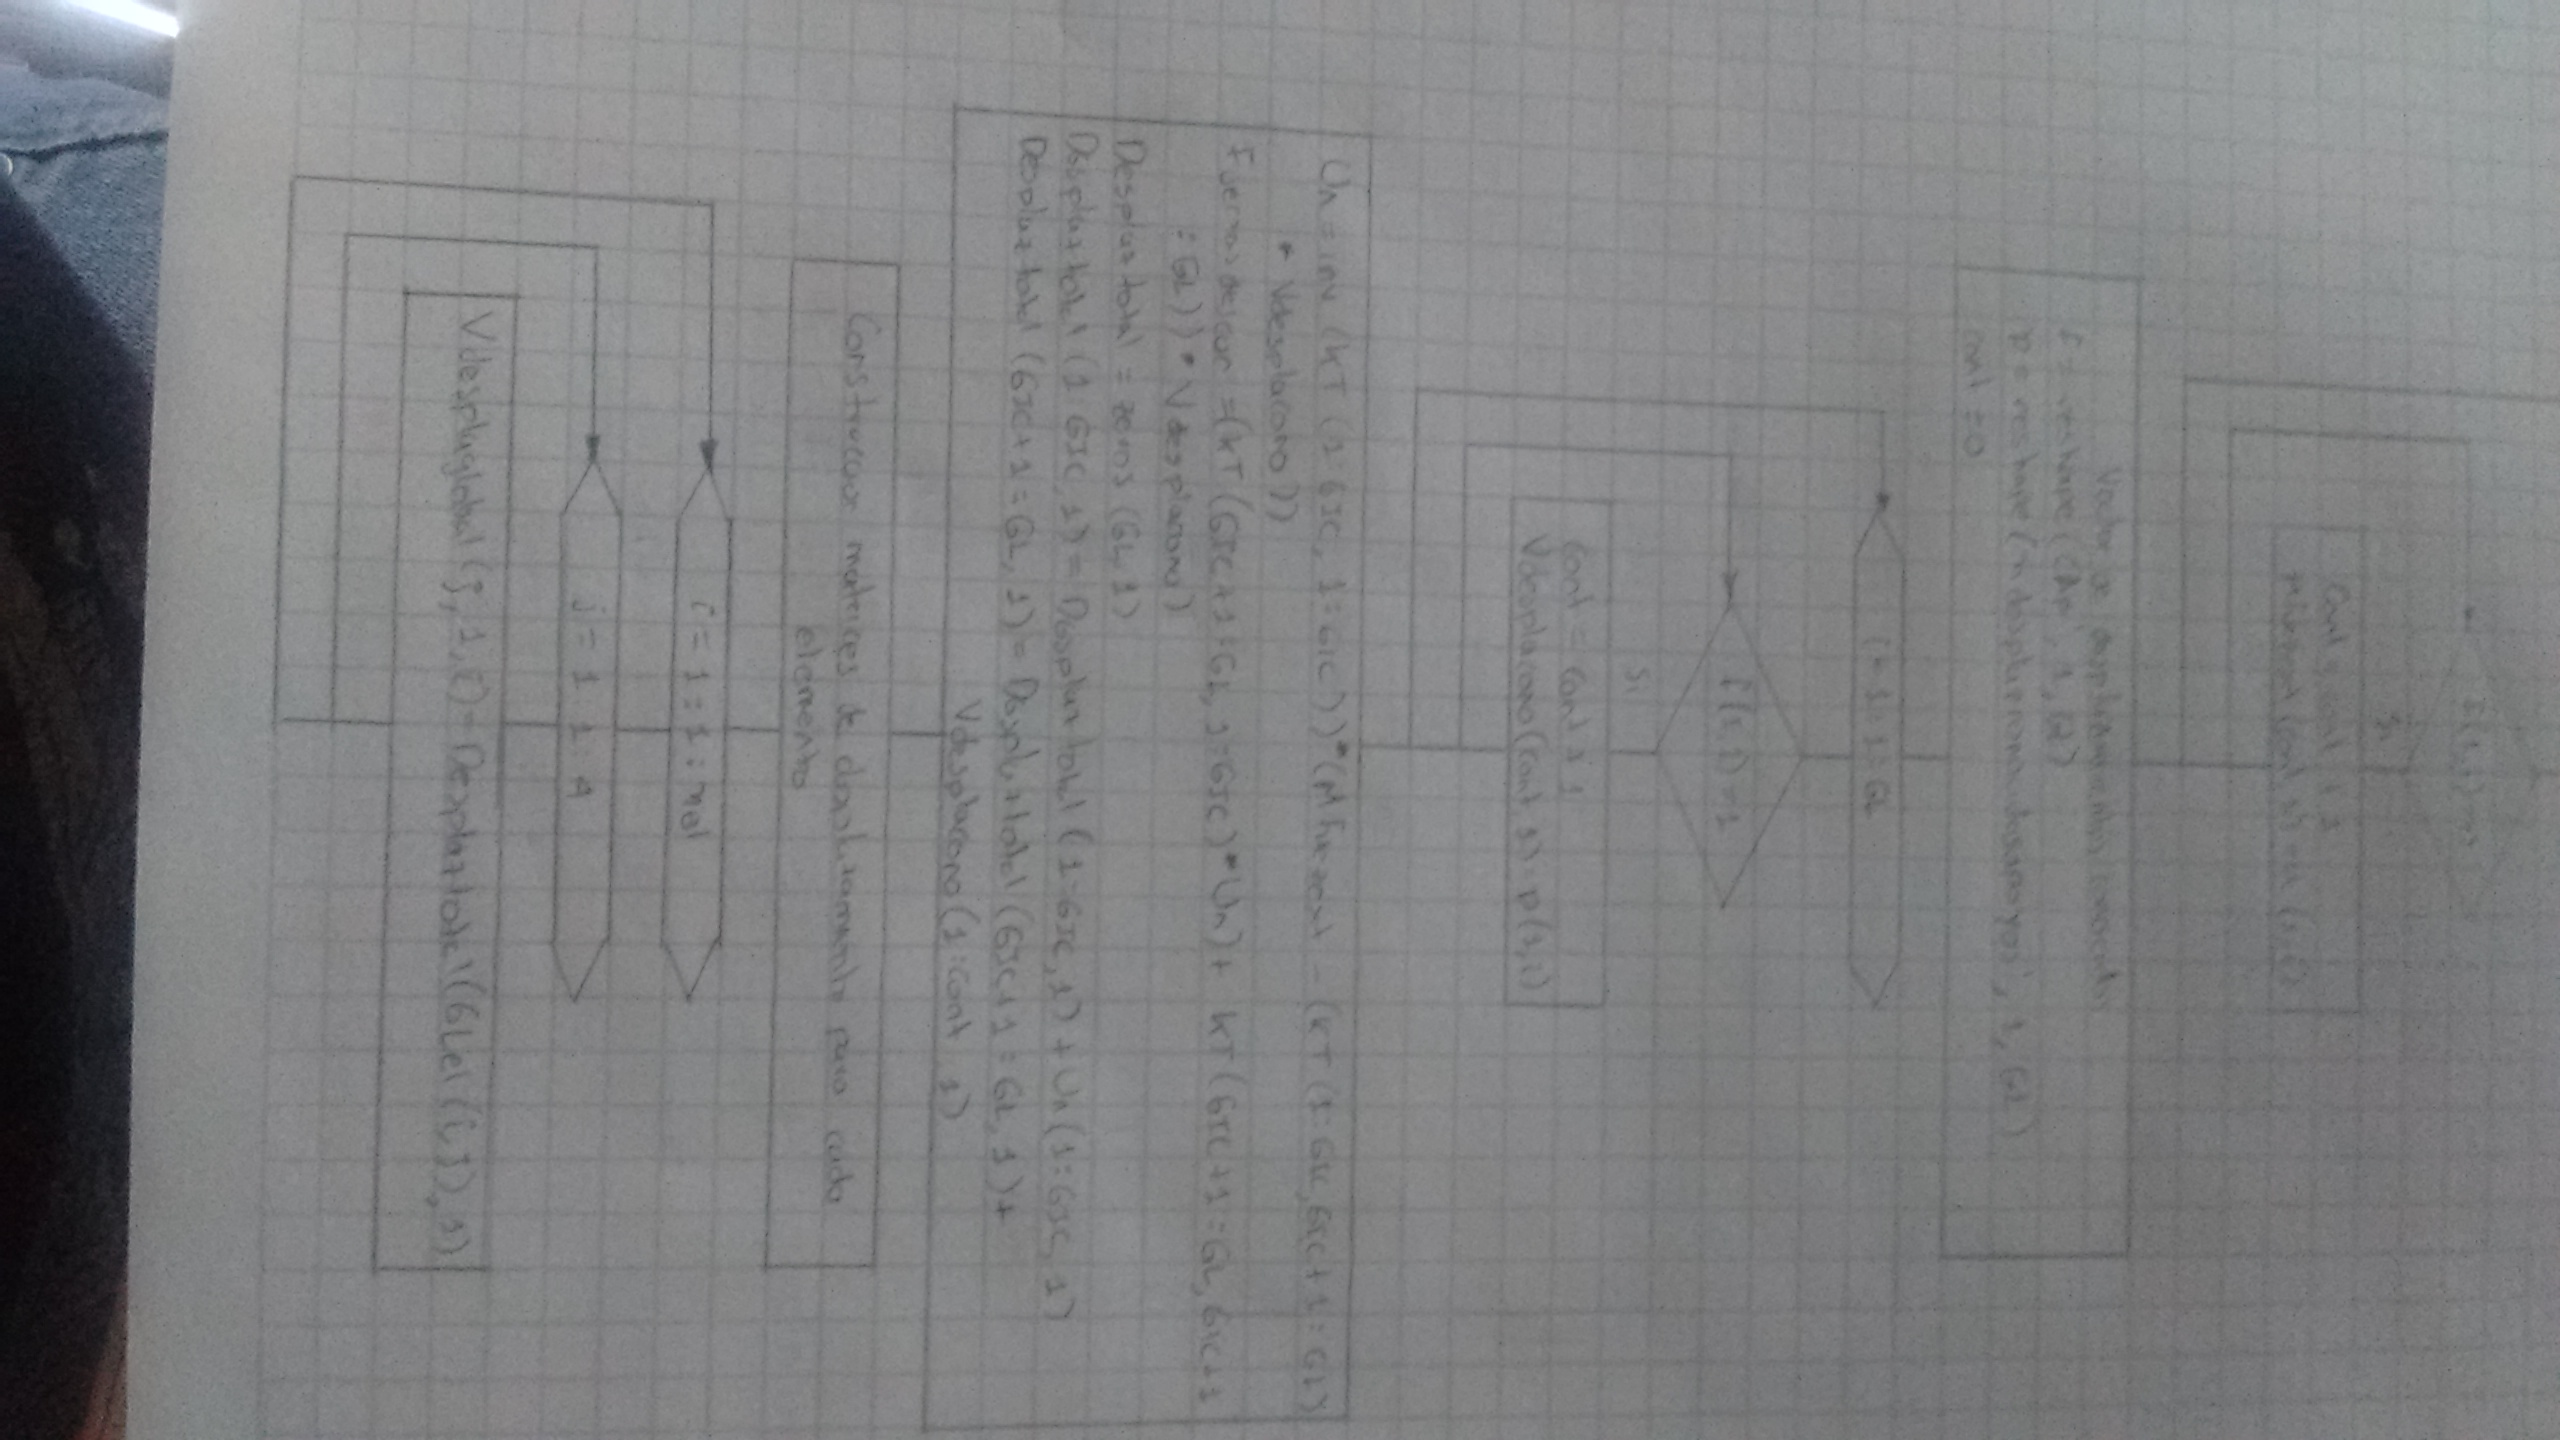 Si
cont = cont + 1
Vector de desplazamientos conocidos
f = reshape (CAp', 1, GL)
p = reshape (mdesplazenlosapoyos', 1, GL)
cont = 0
i = 1:1:GL
f(1,i)=1
Si
Cont = Cont + 1
Vdesplacono(cont,1)=p(1,i)
Un = inv (KT (1:GIC, 1:GIC))*(MFuezext - (KT(1:GIC,GIC+1:GL)
* Vdesplacono))
Fuerzasdescon =(KT(GIC+1:GL,1:GIC)*Un)+ KT(GIC+1:GL,GIC+1
:GL))*Vdesplacono)
Desplaztotal = zeros (GL,1)
Desplaztotal (1:GIC,1)=Desplaztotal (1:GIC,1)+Un(1:GIC,1)
Desplaztotal (GIC+1:GL,1)=Desplaztotal(GIC+1:GL,1)+
Vdesplacono(1:Cont,1)
Construccion matrices de desplazamiento para cada
elemento
i = 1:1:nel
j = 1:1:4
Vdesplaglobal(j,1,i)=Desplaztotal(GLel(i,j),1)